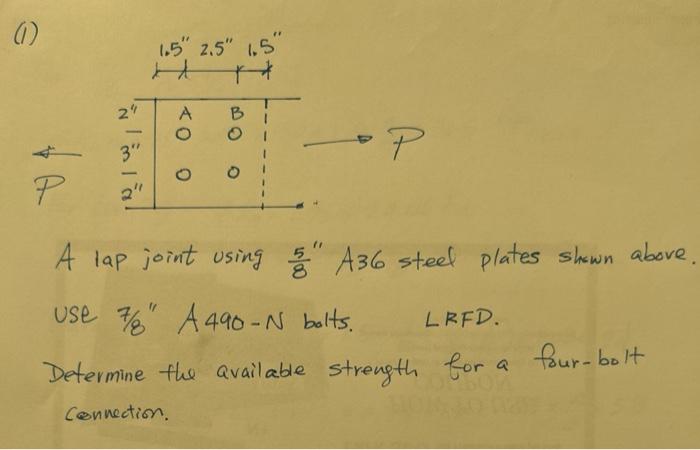 (1)
1.5" 2.5" 1.5"
2" A B
3"
2"
P P
A lap joint using 5/8" A36 steel plates shown above.
use 7/8" A490-N bolts. LRFD.
Determine the available strength for a four-bolt
connection.